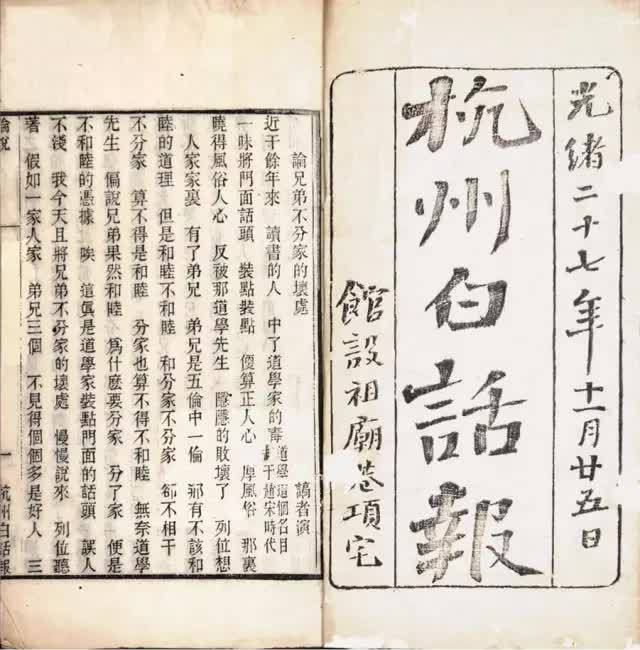 光緒二十七年十一月廿五日
杭州白話報
館設祖廟巷項宅
論兄弟不分家的壞處
謞者演
近千餘年來 讀書的人 中了道學家的毒 道學這個名目
于趙宋時代
一味將門面話頭 裝點裝點 便算正人心 厚風俗 那裏
曉得風俗人心 反被那道學先生 隱隱的敗壞了 列位想
人家家裏 有了弟兄 弟兄是五倫中一倫 那有不該和
睦的道理 但是和睦不和睦 和分家不分家 却不相干
不分家 算不得是和睦 分家也算不得不和睦 無奈道學
先生 偏說兄弟果然和睦 爲什麽要分家 分了家 便是
不和睦的憑據 唉 這眞是道學家裝點門面的話頭 誤人
不淺 我今天且將兄弟不分家的壞處 慢慢說來 列位聽
著 假如一家人家 弟兄三個 不見得個個多是好人 三
論說
一 杭州白話報